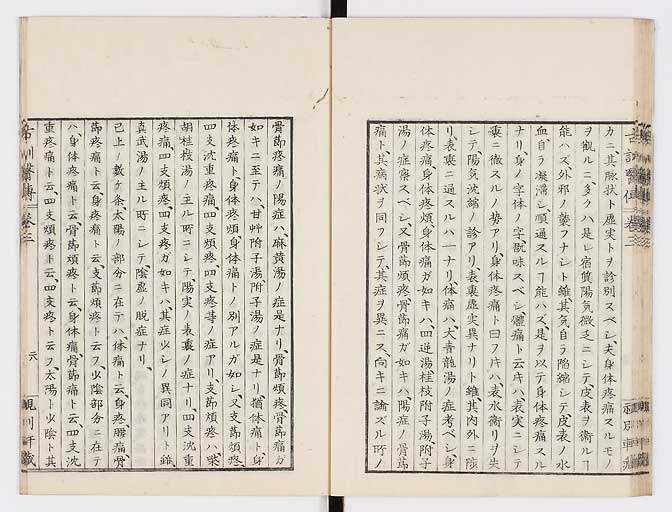 カニ其脉狀ト虛実トヲ診別スベシ夫身体疼痛スルモノ
ヲ觀ルニ多クハ是レ宿質陽気微乏ニシテ皮表ヲ衛ルヿ
能ハズ外邪ノ襲フナシト雖其気自ラ陷縮シテ皮表ノ水
血自ラ凝滯シ順通スルヿ能ハズ是ヲ以テ身体疼痛スル
ナリ身ノ字体ノ字翫味スベシ体痛ト云片ハ表実ニシテ
裏ニ微スルノ勢アリ身体疼痛ト曰フ片ハ表水衞リヲ失
シテ陽気沈縮ノ診アリ表裏虛実異ナリト雖其内外ニ陟
リ表裏ニ通スルハ一ナリ体痛ハ大青龍湯ノ症考ベシ身
体疼痛身体疼煩身体痛ガ如キハ四逆湯桂枝附子湯附子
湯ノ症察スベシ又骨節煩疼骨節痛ガ如キハ陽症ノ骨節
痛ト其病狀ヲ同フシテ其症ヲ異ニス向キニ論ズル所ノ
骨節疼痛ノ陽症ハ麻黄湯ノ症是ナリ骨節煩疼骨節痛ガ
如キニ至テハ甘艸附子湯附子湯ノ症是ナリ猶体痛ト身
体疼痛ト身体疼煩身体痛トノ別アルガ如シ又支節煩疼
四支沈重疼痛四支煩疼四支疼等ノ症アリ支節煩疼ハ柴
胡桂枝湯ノ主ル所ニシテ陽実ノ表裏ノ症ナリ四支沈重
疼痛四支煩疼四支疼ガ如キハ其症少シノ異同アリト雖
真武湯ノ主ル所ニシテ陰虛ノ脱症ナリ
已上ノ數ケ条太陽ノ部分ニ在テハ体痛ト云身疼腰痛骨
節疼痛ト云身疼痛ト云支節煩疼ト云フ少陰部分ニ在テ
ハ身体疼痛ト云骨節煩疼ト云身体痛骨節痛ト云四支沈
重疼痛ト云四支煩疼ト云四支疼ト云フ太陽ト少陰ト其
古訓醫傳 卷三
六